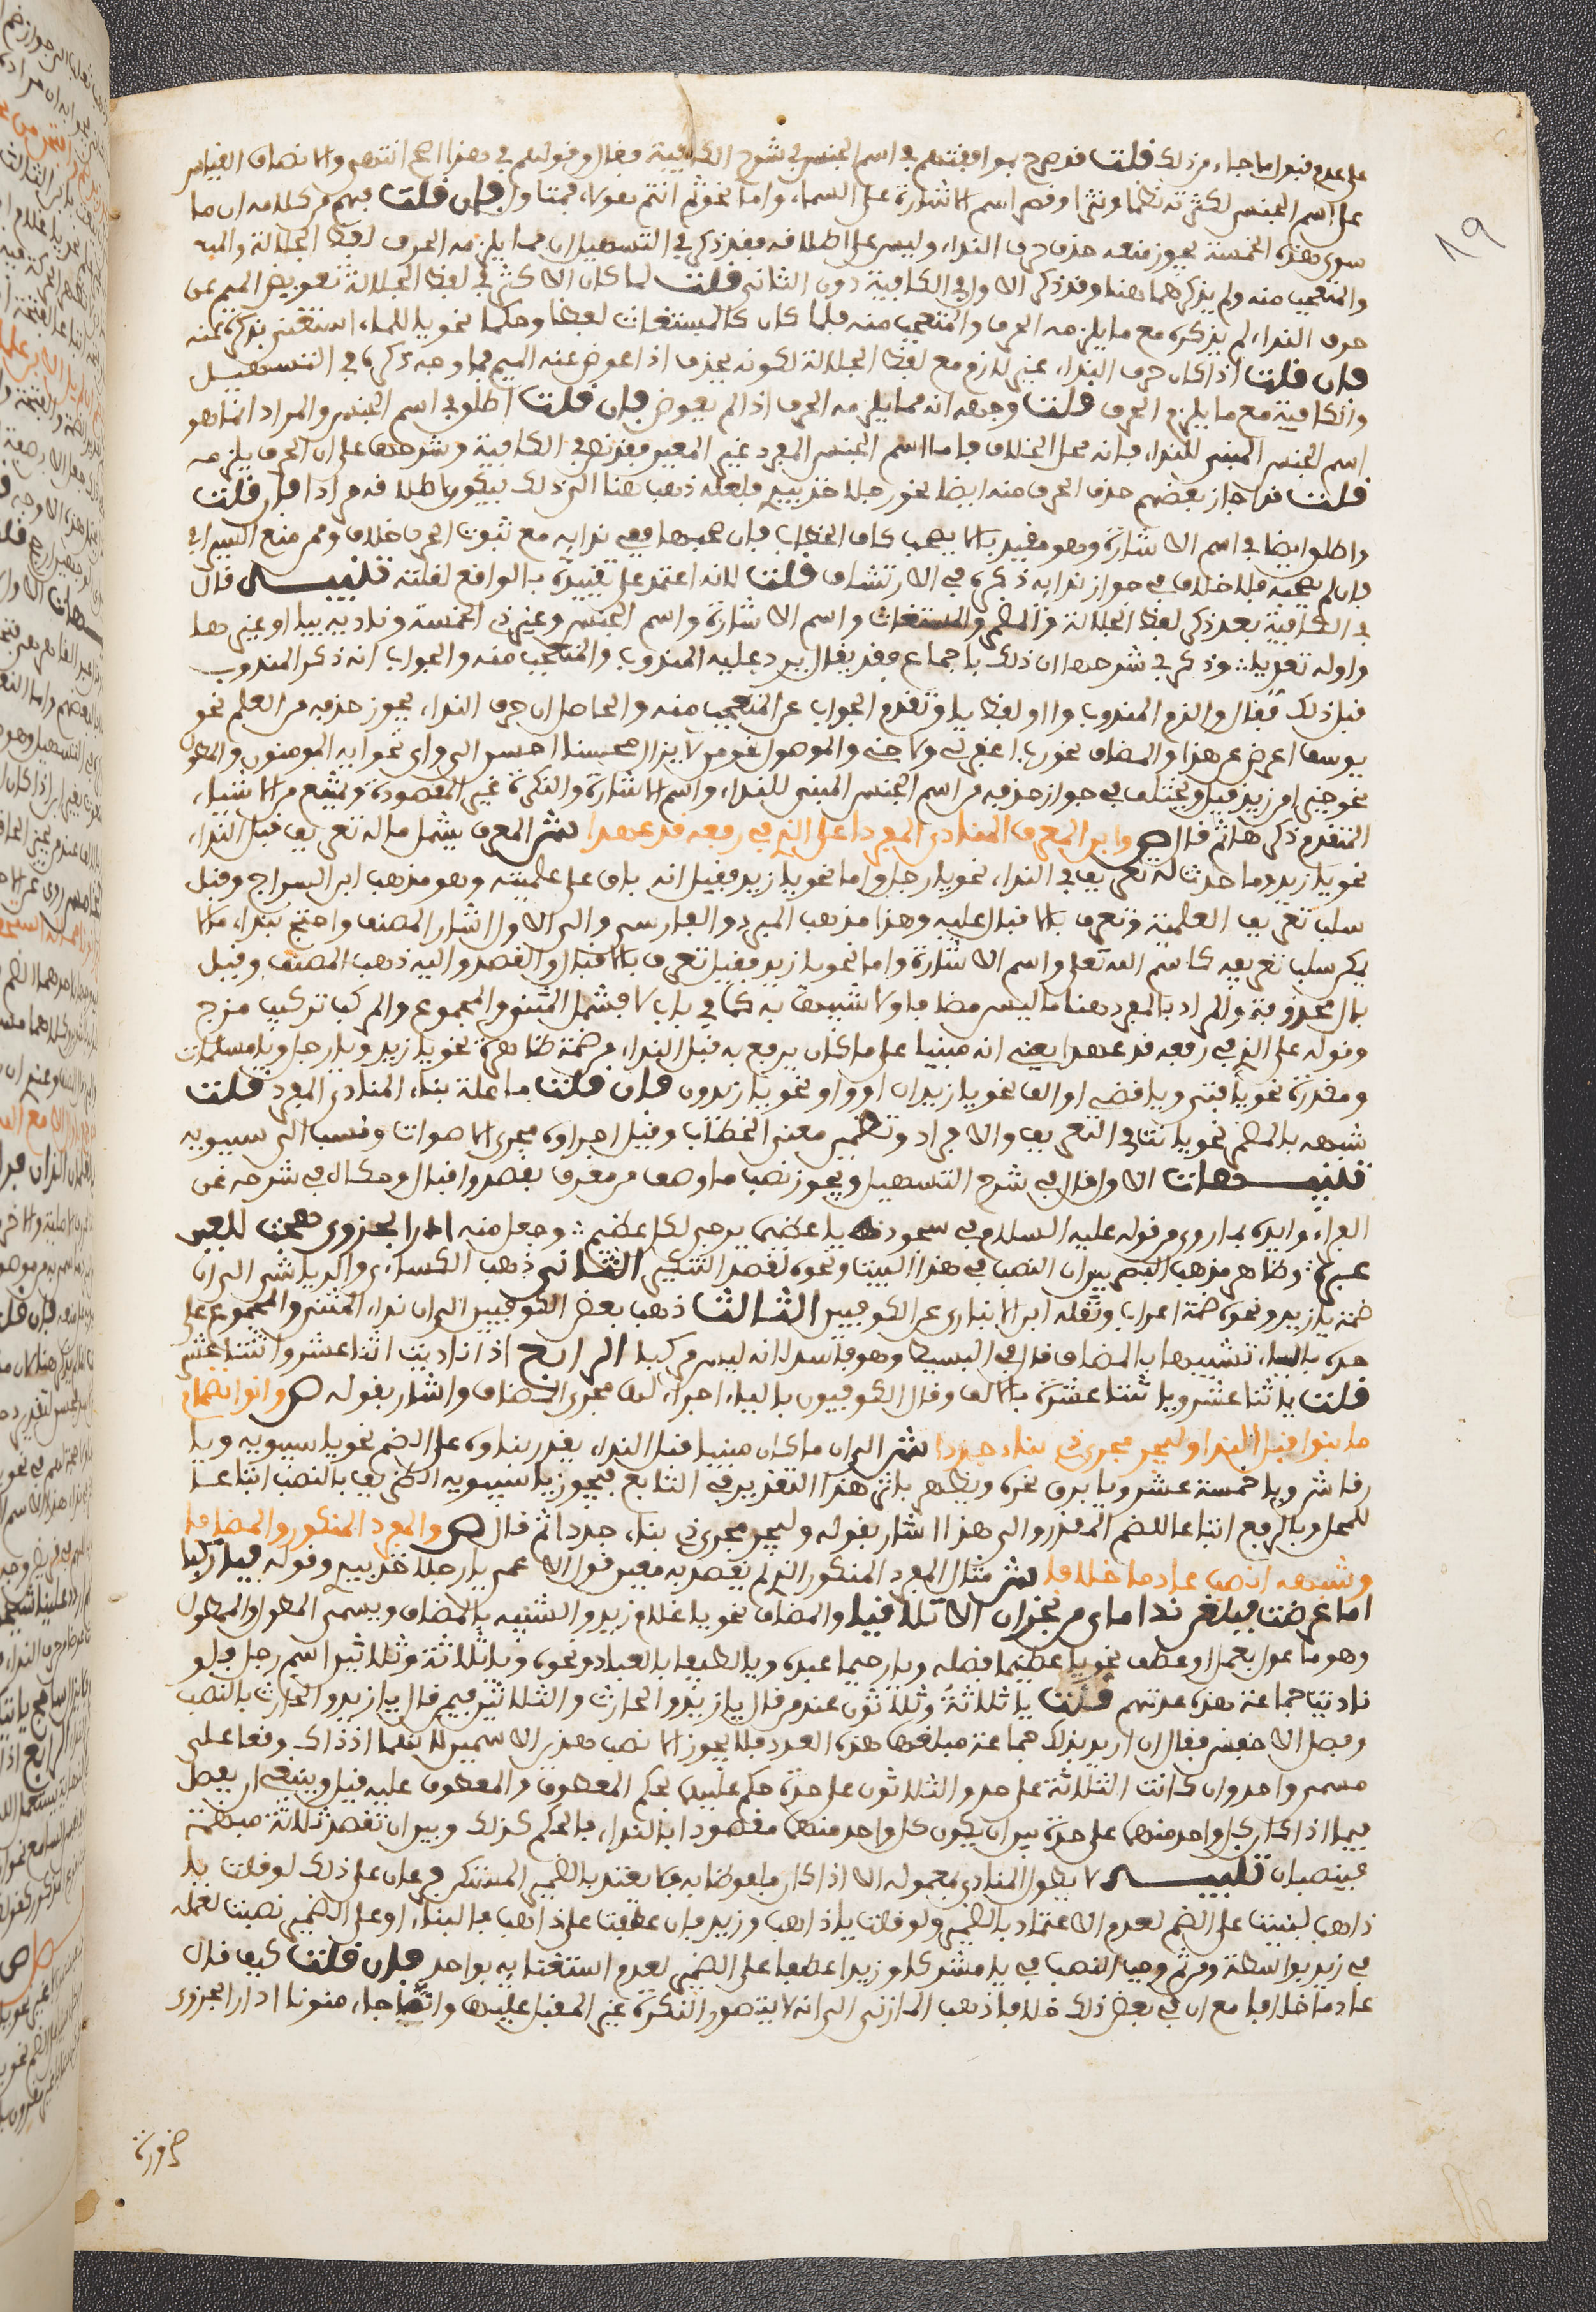 على عدم قبول ما جاء من ذلك قلت قد صرح بموافقتهم في اسم الجنس في شرح الكافية فقال وقولهم في هذا اصح انتهى والانصاف القياس
على اسم الجنس لكثرته نظما ونثرا وقصر اسم الاشارة على السماع واما نحو ثم انتم هؤلاء فمتاول فان قلت فهم من كلامه ان ما
سوى هذه الخمسة يجوز معه حذف حرف النداء وليس على اطلاقه فقد ذكر في التسهيل ان مما يلزمه الحرف لفظ الجلالة
والمتعجب منه ولم يذكرهما هنا وقد ذكر الاول في الكافية دون الثاني قلت لما كان الاكثر في لفظ الجلالة تعويض الميم عن
حرف النداء لم يذكره مع ما يلزمه الحرف والمتعجب منه فلما كان كالمستغاث لفظا وحكما نحو يا للماء استغنى بذكره عنه
فان قلت اذا كان حرف النداء غير لازم مع لفظ الجلالة لكونه يحذف اذا عوض عنه الميم فما وجه ذكره في التسهيل
والكافية مع ما يلزم الحرف قلت وجهه انه مما يلزمه الحرف اذا لم يعوض فان قلت اطلق في اسم الجنس والمراد انما هو
اسم الجنس المبني للنداء فانه محل الخلاف فاما اسم الجنس المفرد غير المعين فقد نص في الكافية وشرحها على ان الحرف يلزمه
قلت قد اجاز بعضهم حذف الحرف منه ايضا نحو رجلا خذ بيدي فلعله ذهب هنا الى ذلك فيكون اطلاقه مرادا فان قلت
واطلق ايضا في اسم الاشارة وهو مقيد بالا يصحب كاف الخطاب فان صحبها ففي ندايه مع ثبوت الحرف خلاف وممن منع السيرافي
فان لم تصحبه فلا خلاف في جواز ندايه ذكره في الارتشاف قلت لانه اعتمد على تقييده بالواقع لقلته تنبيه قال
في الكافية بعد ذكر لفظ الجلالة والمضمر والمستغاث واسم الاشارة واسم الجنس وغير ذي الخمسة ناديه بيا او غيرها
واوله تعريا وذكر في شرحها ان ذلك باجماع فقد يقال يرد عليه المندوب والمتعجب منه والجواب انه ذكر المندوب
قبل ذلك فقال والزم المندوب وا او لفظ يا وتقدم الجواب عن المتعجب منه والحاصل ان حرف النداء يجوز حذفه من العلم نحو
يوسف اعرض عن هذا والمضاف نحو رب اغفر لي ولاخي والموصول نحو من لا يزال محسنا احسن الي واي نحو ايه المومنون والمطول
نحو خيرا من زيد اقبل ويختلف في جواز حذفه من اسم الجنس المبني للنداء واسم الاشارة والنكرة غير المقصودة ويمتنع من الاشياء
المتقدم ذكرها ثم قال ص وابن المعرف المنادى المفردا على الذي في رفعه قد عهدا ش المعرف يشمل ما له تعريف قبل النداء
نحو يا زيد وما حدث له تعريف في النداء نحو يا رجل واما نحو يا زيد فقيل انه باق على علميته وهو مذهب ابن السراج وقيل
سلب تعريف العلمية وتعرف بالاقبال عليه وهذا مذهب المبرد والفارسي والى الاول اشار المصنف واحتج بنداء ما لا
يمكن سلب تعريفه كاسم الله تعلى واسم الاشارة واما نحو يا زيد فقيل تعرف بالاقبال والقصد واليه ذهب المصنف وقيل
بال محذوفة والمراد بالمفرد هنا ما ليس مضافا ولا شبيها به كما في باب لا فشمل المثنى والمجموع والمركب تركيب مزج
وقوله على الذي في رفعه قد عهدا يعني انه مبنيا على ما كان يرفع به قبل النداء من ضمة ظاهرة نحو يا زيد ويا رجل ويا مسلمات
ومقدرة نحو يا فتى ويا قاضي او الف نحو يا زيدان او واو نحو يا زيدون فان قلت ما علة بناء المنادى المفرد قلت
شبهه بالمضمر نحو يا انت في التعريف والافراد وتضمين معنى الخطاب وقيل اجراوه مجرى الاصوات ونسب الى سيبويه
تنبيهات الاول قال في شرح التسهيل ويجوز نصب ما وصف من معرف بقصد واقبال وحكاه في شرحه عن
الفراء وايده بما روي من قوله عليه السلام في سجوده يا عظيما يرجى لكل عظيم وجعل منه ادارا بحزوى هجت للعين
عبرة وظاهر مذهب البصريين ان النصب في هذا البيت ونحوه لقصد التنكير الثاني ذهب الكساءي والرياشي الى ان
ضمة يا زيد ونحوه ضمة اعراب ونقله ابن الانباري عن الكوفيين الثالث ذهب بعض الكوفيين الى ان نداء المثنى والمجموع على
حده بالياء تشبيها بالمضاف قال في البسيط وهو فاسد لانه ليس مركبا الرابع اذا ناديت اثنا عشر واثنتا عشر
قلت يا اثنا عشر ويا اثنتا عشرة بالالف وقال الكوفيون بالياء اجراء لهما مجرى المضاف واشار بقوله ص وانو انضمام
ما بنوا قبل الندا وليجر مجرى ذي بناء جددا ش الى ان ما كان مبنيا قبل النداء يقدر بناوه على الضم نحو يا سيبويه ويا
رقاش ويا خمسة عشر ويا برق نحره ويظهر باثر هذا التقدير في التابع فيجوز يا سيبويه الظريف بالنصب اتباعا
للمحل وبالرفع اتباعا للضم المقدر والى هذا اشار بقوله وليجر مجرى ذي بناء جددا ثم قال ص والمفرد المنكور والمضافا
وشبهه انصب عادما خلافا ش مثال المفرد المنكور الذي لم يقصد به معين قول الاعمى يا رجلا خذ بيدي وقوله فيا راكبا
اما عرضت فبلغن نداماي من نجران الا تلاقيا والمضاف نحو يا غلام زيد والشبيه بالمضاف ويسمى المطول والممطول
وهو ما عمل بعمل او عطف نحو يا عظيما فضله ويا رحيما عبده ويا لطيفا بالعباد ونحوه ويا ثلاثة وثلاثين اسم رجل ولو
ناديت جماعة هذه عدتهم قلت يا ثلاثة وثلاثون عند من قال يا زيد والحارث والثلاثين فيمن قال يا زيد والحارث بالنصب
وفصل الاخفش فقال ان اريد بذلك جماعة مبلغها هذه العدد فلا يجوز الا نصب هذين الاسمين لانهما اذ ذاك وقعا على
مسمى واحد وان كانت الثلاثة على حد والثلاثون على حدة حكم عليهما بحكم المعطوف والمعطوف عليه قيل وينبغي ان يفصل
فيما اذا كان كل واحد منهما على حدة بين ان يكون كل واحد منهما مقصودا بالنداء فالحكم كذلك وبين ان تقصد ثلاثة مبهمة
فينصبان تنبيه لا يطول المنادى بمعموله الا اذا كان ملفوظا به فلا يعتد بالضمير المستتر فرعان على ذلك لو قلت يا
ذاهب لبنيت على الضم لعدم الاعتداد بالضمير ولو قلت يا ذاهب وزيد فان عطفت على ذاهب فالبناء او على الضمير نصبت لعمله
في زيد بواسطة ومن ثم وجب النصب في يا مشتركا وزيدا عطفا على الضمير لعدم استغنايه بواحد فان قلت كيف قال
عادما خلافا مع ان في بعض ذلك خلافا ذهب المازني الى انه لا يتصور النكرة غير المقبل عليها وانما جاء منونا ادارا بحزوى
ضرورة
19